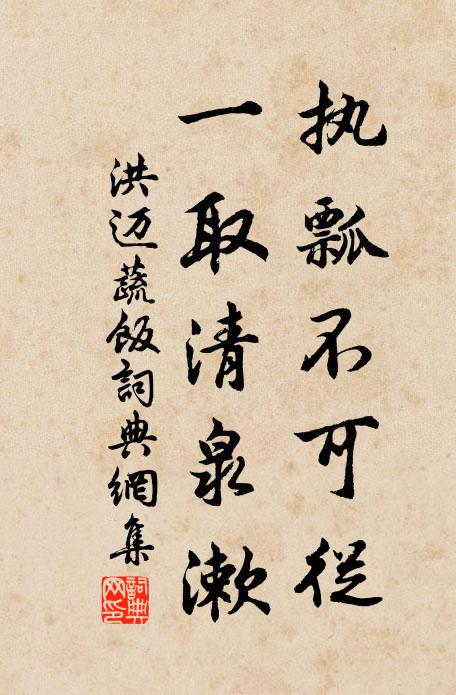 执瓢不可从
一取清泉漱
洪迈蔬饭詞典網集
詞典